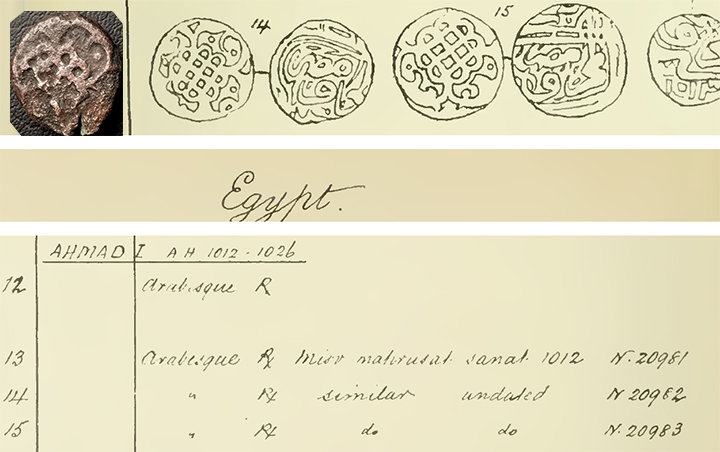 14 15
Egypt.
AHMAD I AH 1012-1026
12 Arabesque Ʀ
13 Arabesque Ʀ Misr mahrusat sanat 1012 N. 20981
14 " Ʀ similar undated N 20982
15 " Ʀ do do N. 20983